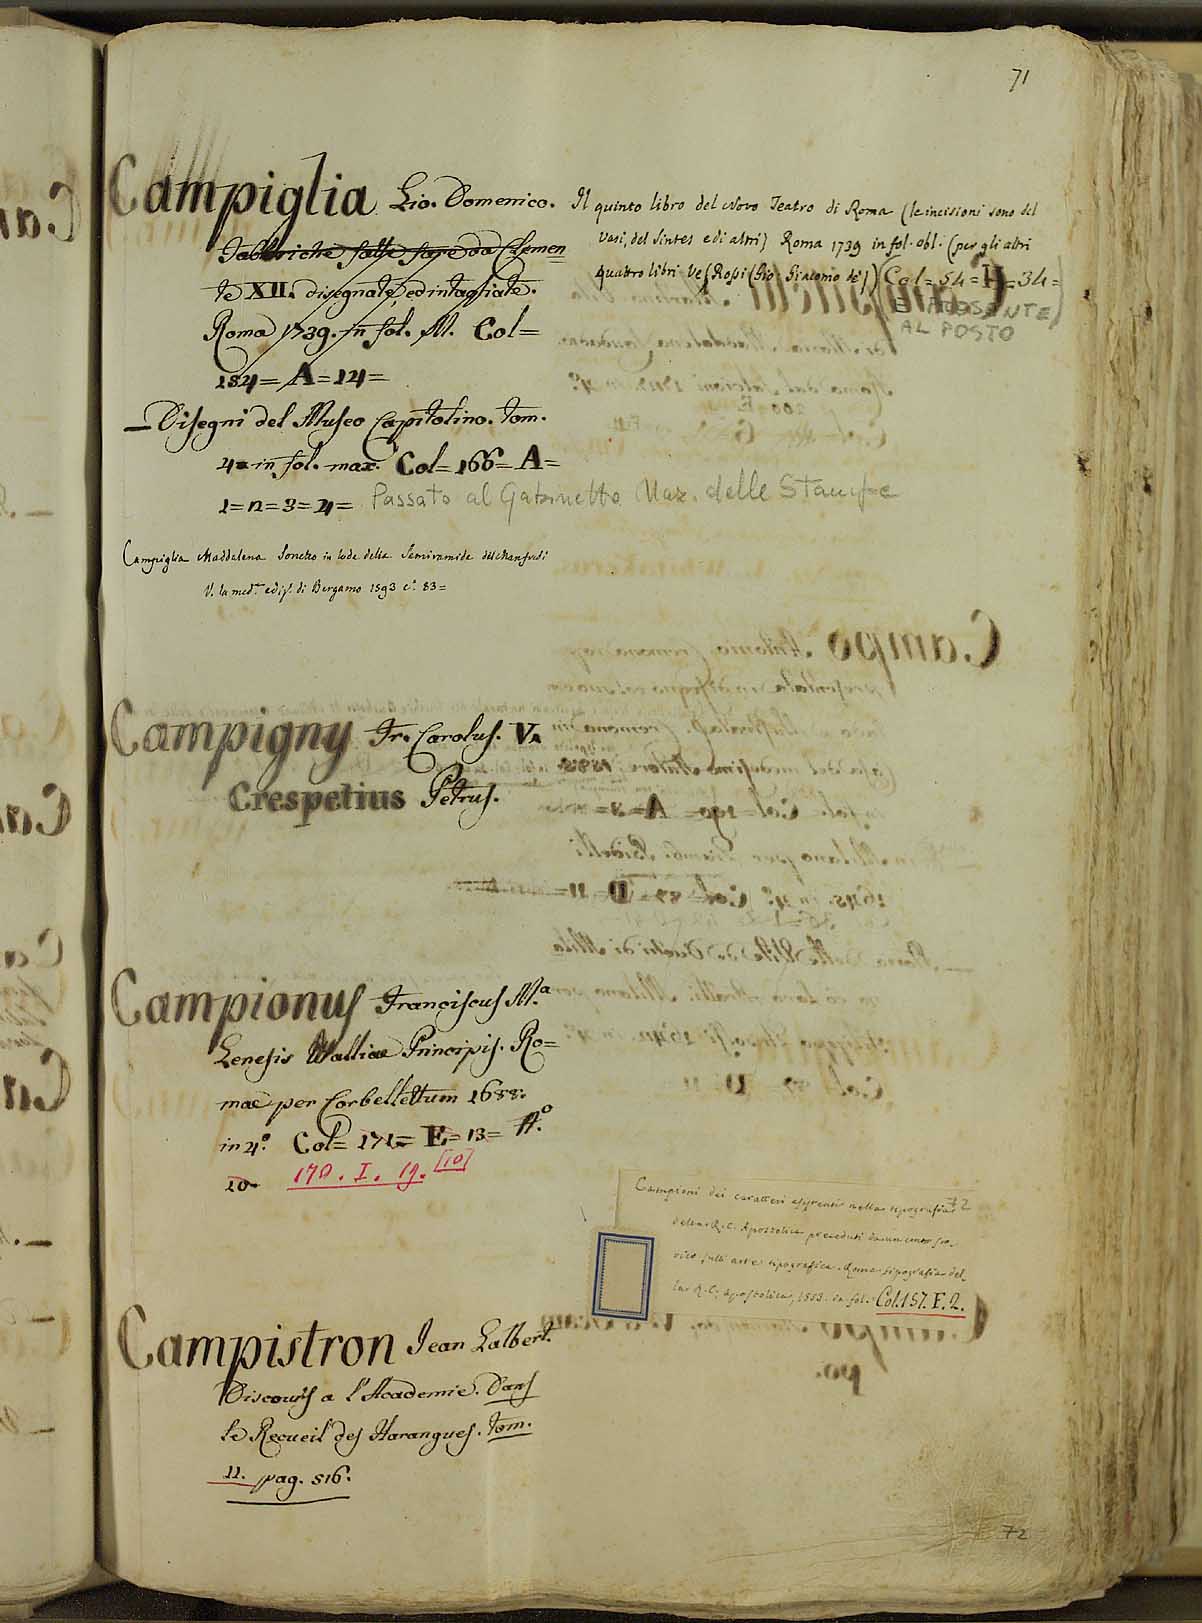 71
Campiglia Gio. Domenico.
Fabbriche fatte fare da Clemen
te XII. disegnate, ed intagliate.
Roma 1739. in fol. M. Col=
184= A=14=
_Disegni del Museo Capitolino. tom.
4= in fol. max. Col=166= A=
1=n=3=4= Passato al Gabinetto Naz. delle Stampe
Il quinto libro del Novo Teatro di Roma (le incisioni sono del
Vasi, del Sintes e di altri) Roma 1739 in fol. obl. (per gli altri
quattro libri Ve[ Rossi (Gio. Giacomo de')] (Col=54=H=34=
AL POSTO
Campiglia Maddalena Sonetto in lode della Semiramide del Manfredi
V. la med.ᵃ ediz. di Bergamo 1593 c. 83=
Campigny Fr. Carolus. V.
Crespetius Petrus.
Campionus Franciscus M.ᵃ
Genesis Walliae Principis. Ro=
mae per Corbellettum 1688.
in 4.º Col= 171= E=13= n.º
10. 170. I. 19. [10]
Campioni dei caratteri esistenti nella tipografia 72
della R. C. Apostolica preceduti da un cenno sto-
rico sull'arte tipografica. Roma tipografia del-
la R. C. Apostolica, in fol. Col. 157. F. 2.
Campistron Jean Galbert.
Discours a l'Academie. Dans
le Recueil des Harangues. tom.
11. pag. 516.
72